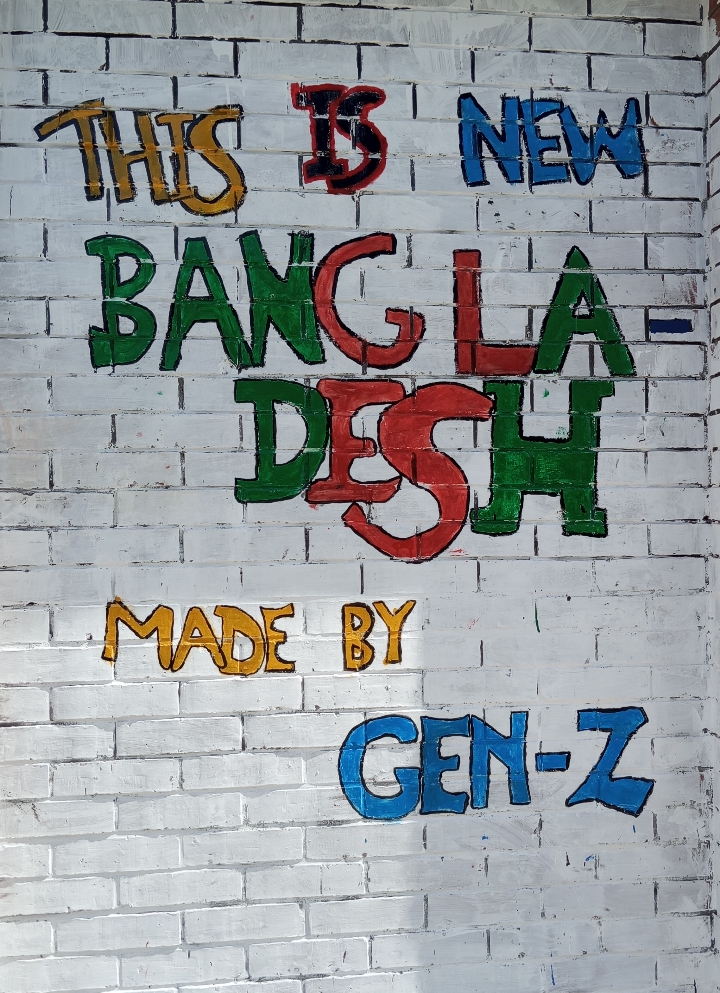 THIS IS NEW
BANGLA-
DESH
MADE BY
GEN-Z